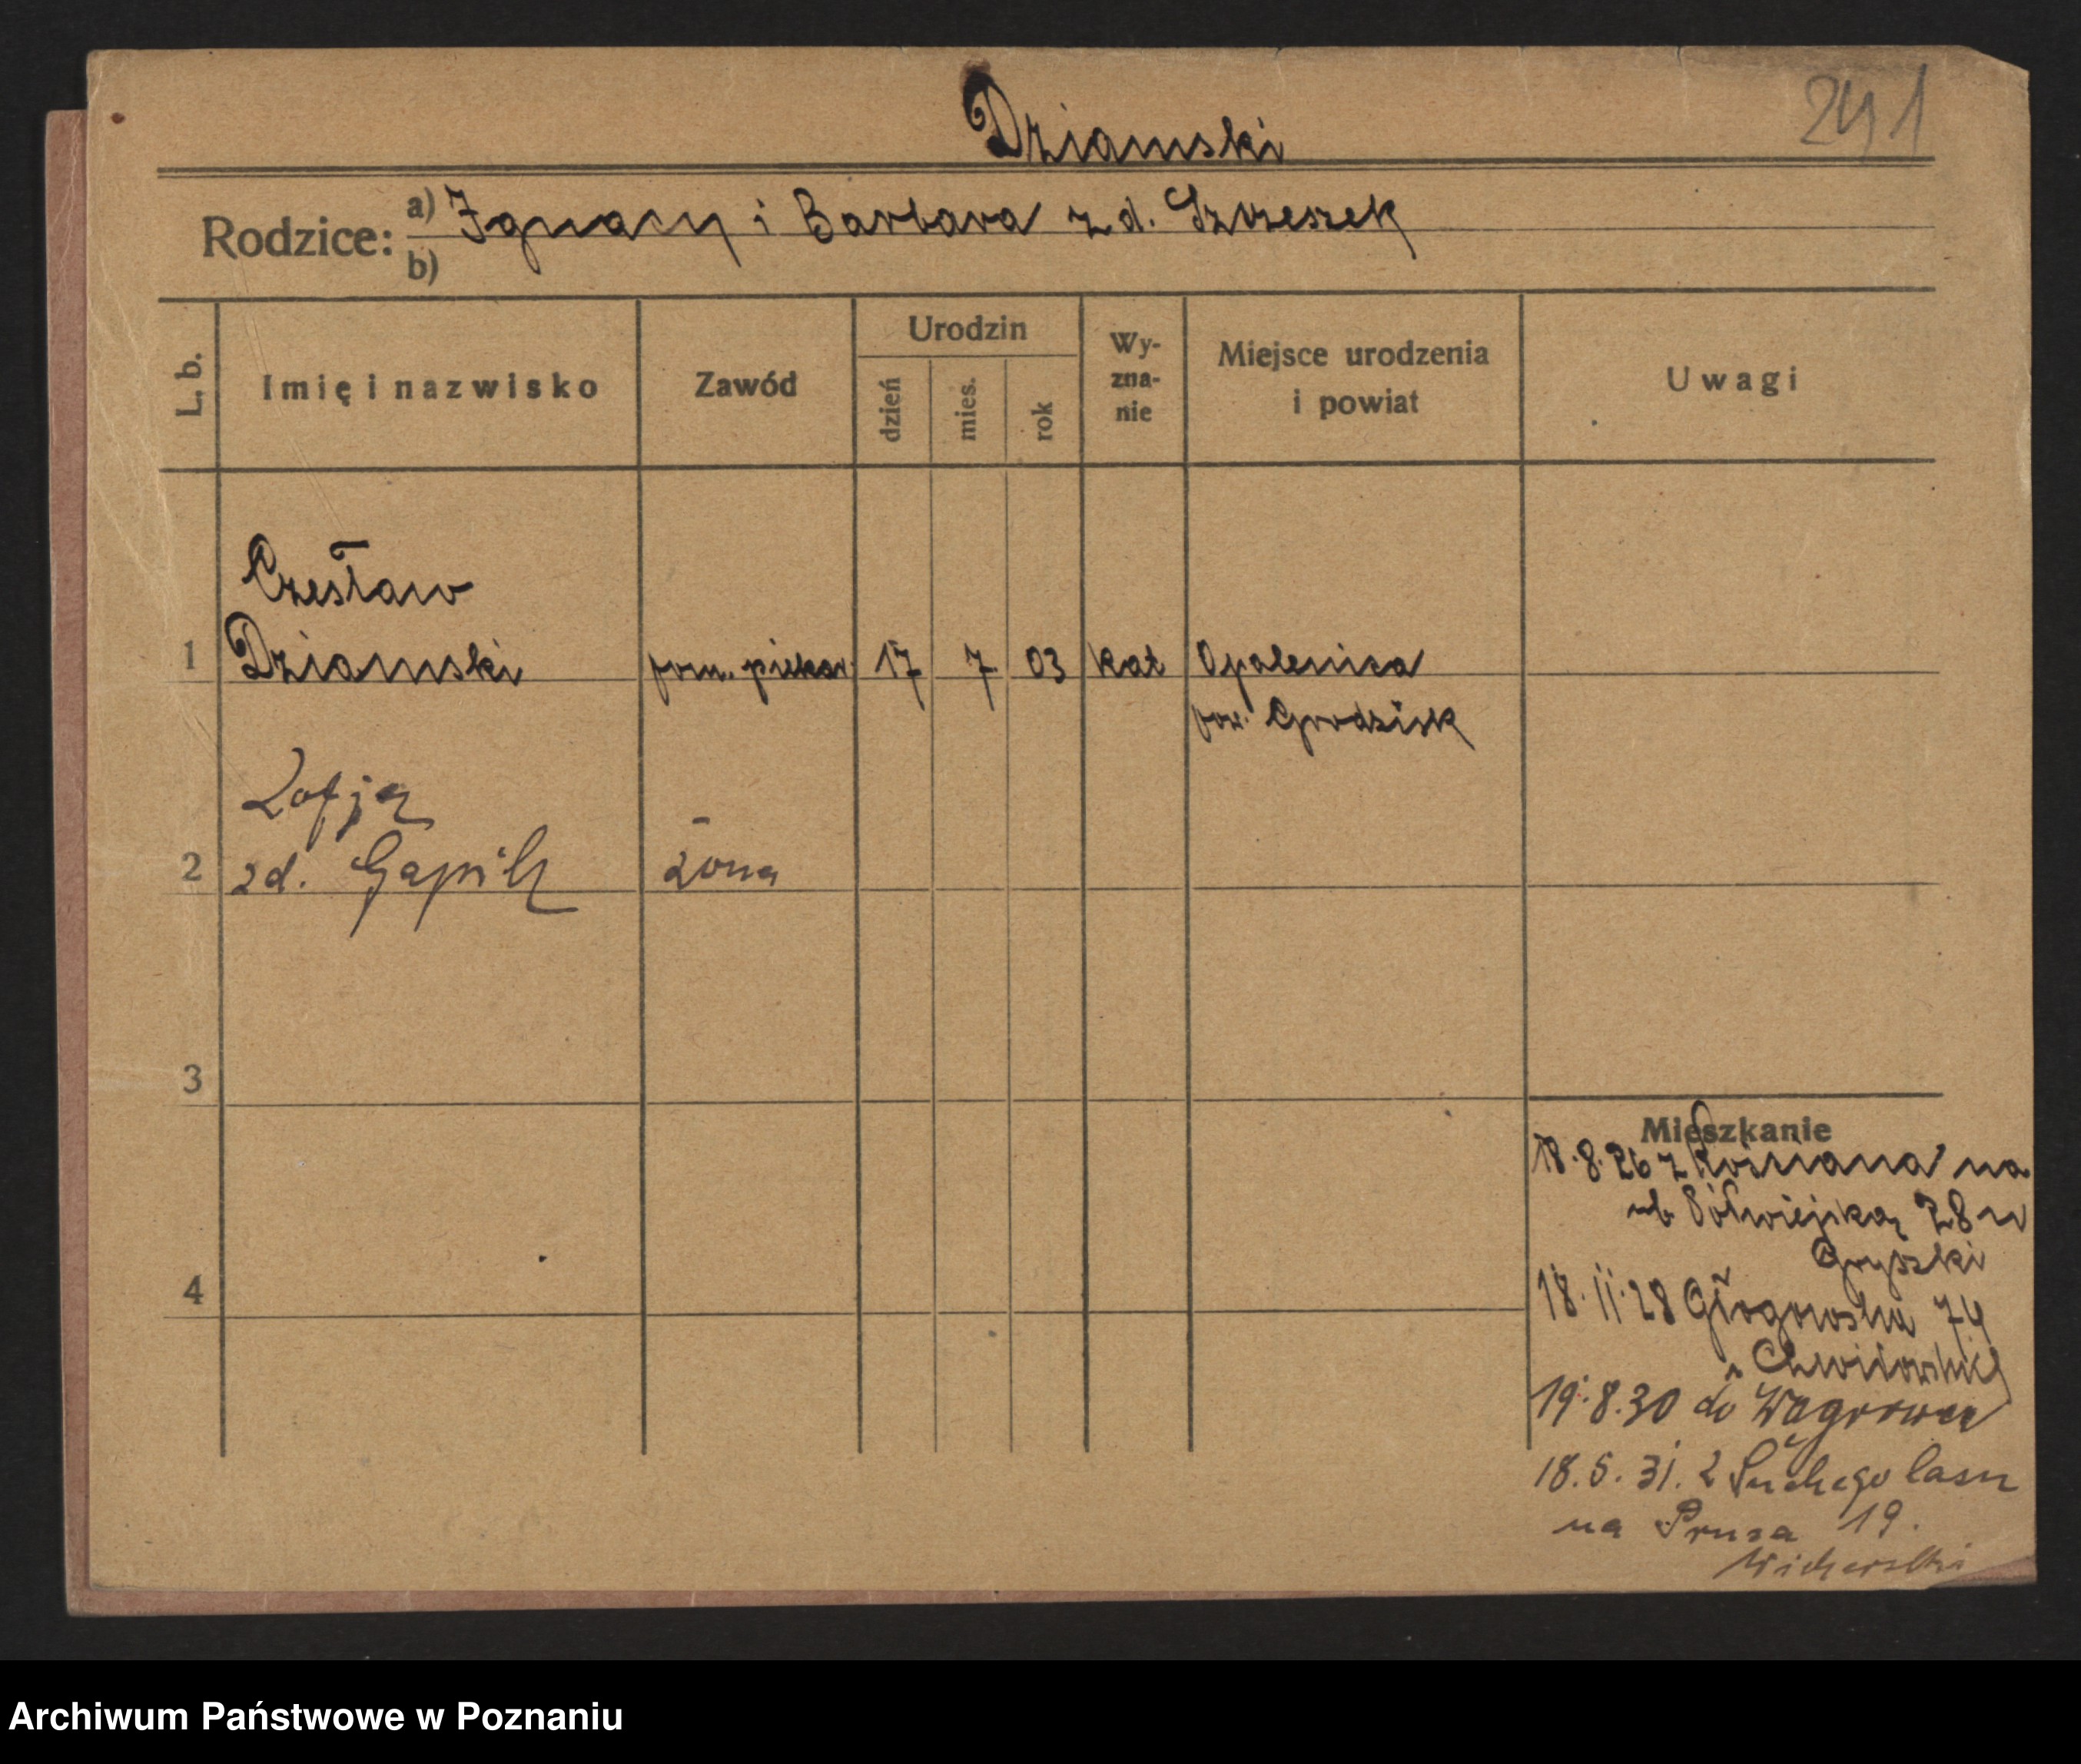 Dziamski
241
Rodzice: a) Ignacy i Barbara z d. Szczeszek
b)
L. b.
Imię i nazwisko
Zawód
Urodzin
dzień
mies.
rok
Wy-
zna-
nie
Miejsce urodzenia
i powiat
Uwagi
Czesław
1 Dziamski pom. piekar. 17 7 03 kat Opalenica
pow. Grodzisk
Zofja
2 zd. żona
3
4
Mieszkanie
18.8.26 z Kościana na
ul. Półwiejską 28 u
18.11.28 Głogowska 74
u
19.8.30 do Wągrowca
18.5.31. z Suchego lasu
na Prusa 19.
Wicherski
Archiwum Państwowe w Poznaniu